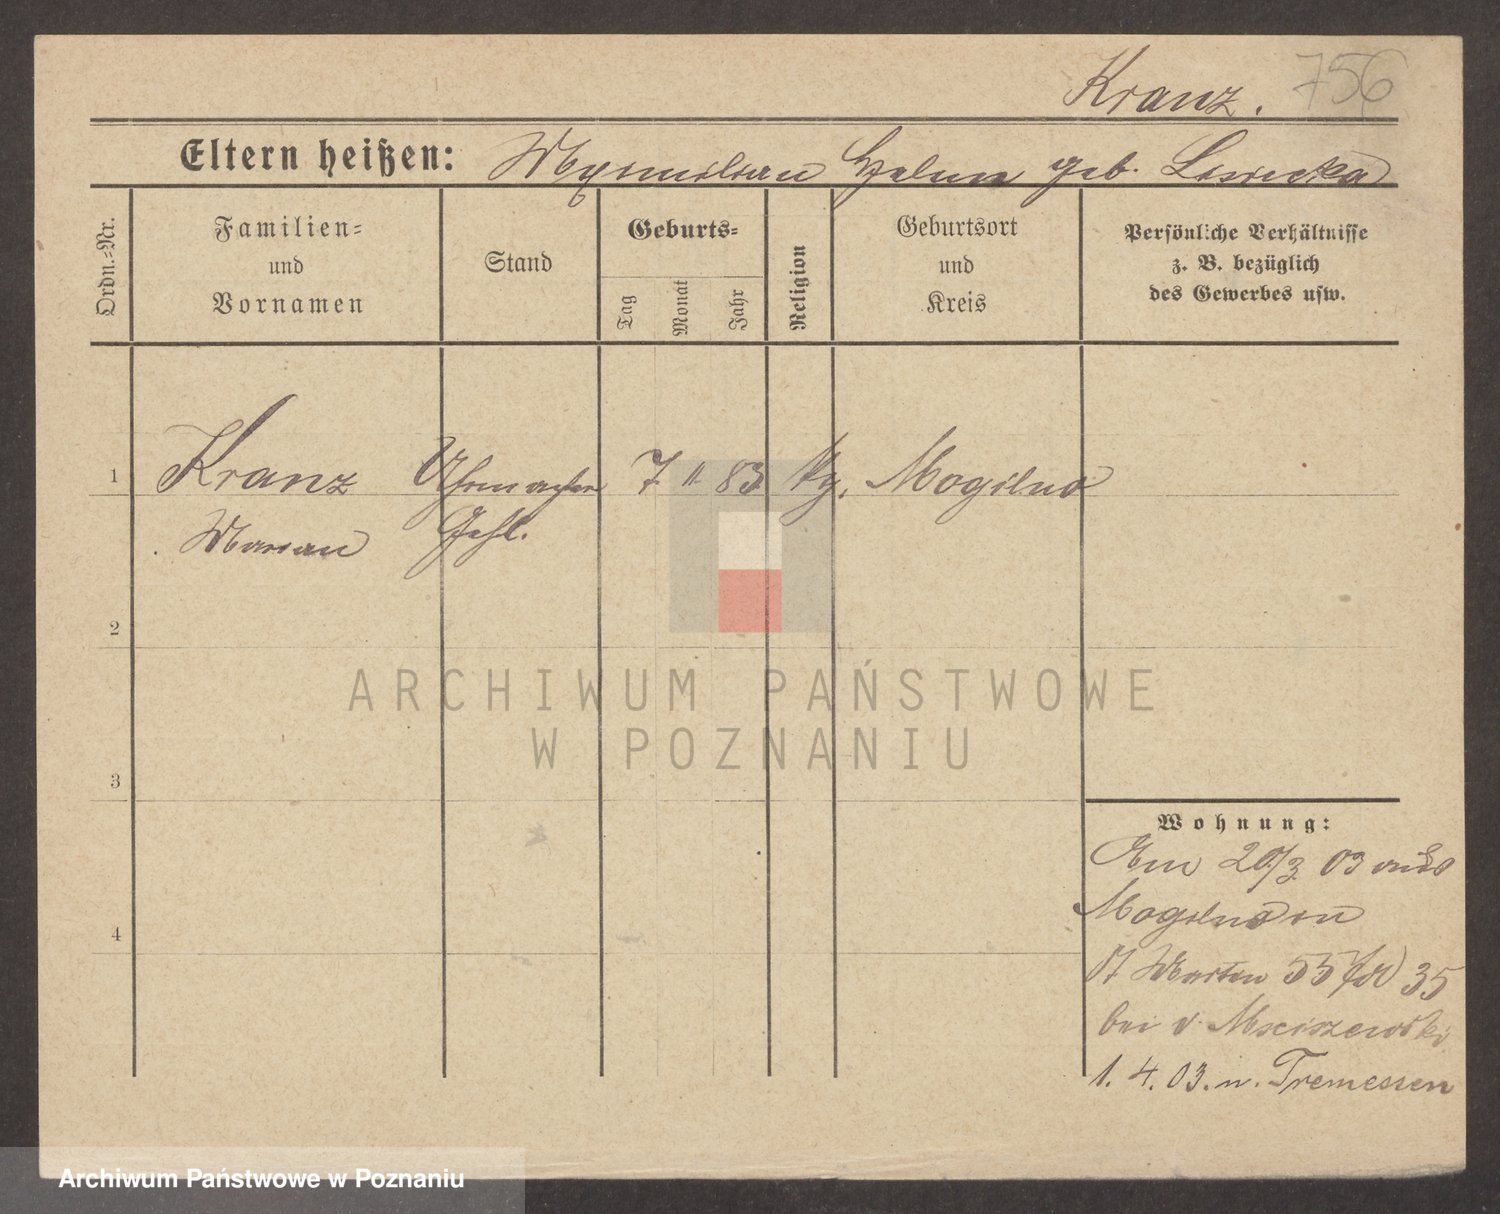 Kranz. 756
Eltern heißen: Maximilian Helene geb. Lisiecka
Ordn.-Nr.
Familien-
und
Vornamen
Stand
Geburts-
Tag
Monat
Jahr
Religion
Geburtsort
und
Kreis
Persönliche Verhältnisse
z. B. bezüglich
des Gewerbes usw.
1 Kranz Uhrmacher 7 11 83 Mogilno
Marian Gehl.
2
3
4
ARCHIWUM PAŃSTWOWE
W POZNANIU
Wohnung:
20/3 03 aus
Mogilno in
St Martin 55 35
bei v. Msciszewski
1. 4. 03. n. Tremessen
Archiwum Państwowe w Poznaniu